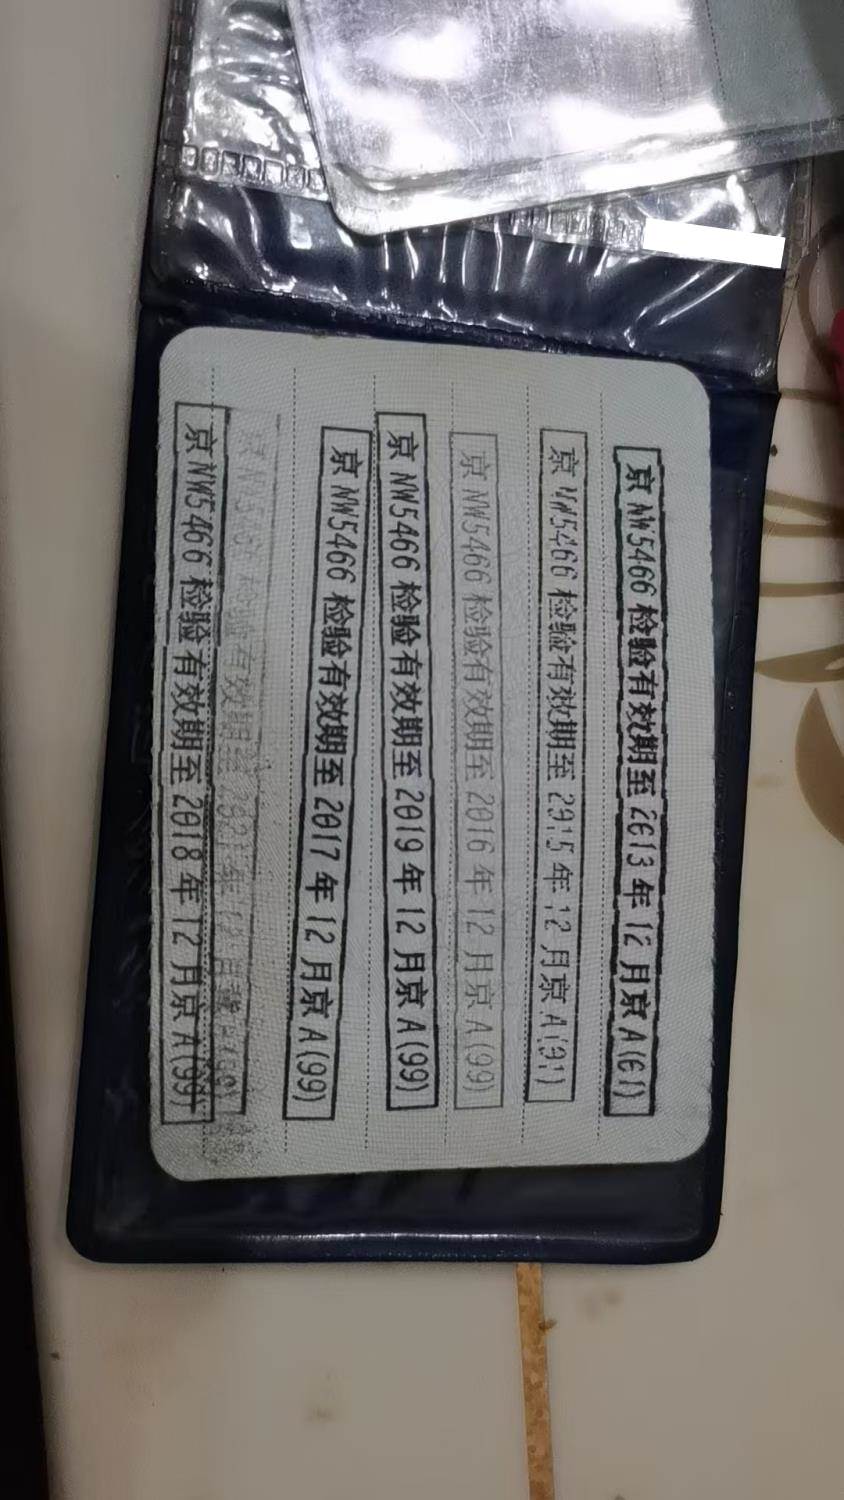 京NW5466检验有效期至2013年12月京A(61)
京NW5466检验有效期至2015年12月京A(91)
京NW5466检验有效期至2016年12月京A(99)
京NW5466检验有效期至2019年12月京A(99)
京NW5466检验有效期至2017年12月京A(99)
京NW5466检验有效期至2021年12月
京NW5466检验有效期至2018年12月京A(99)